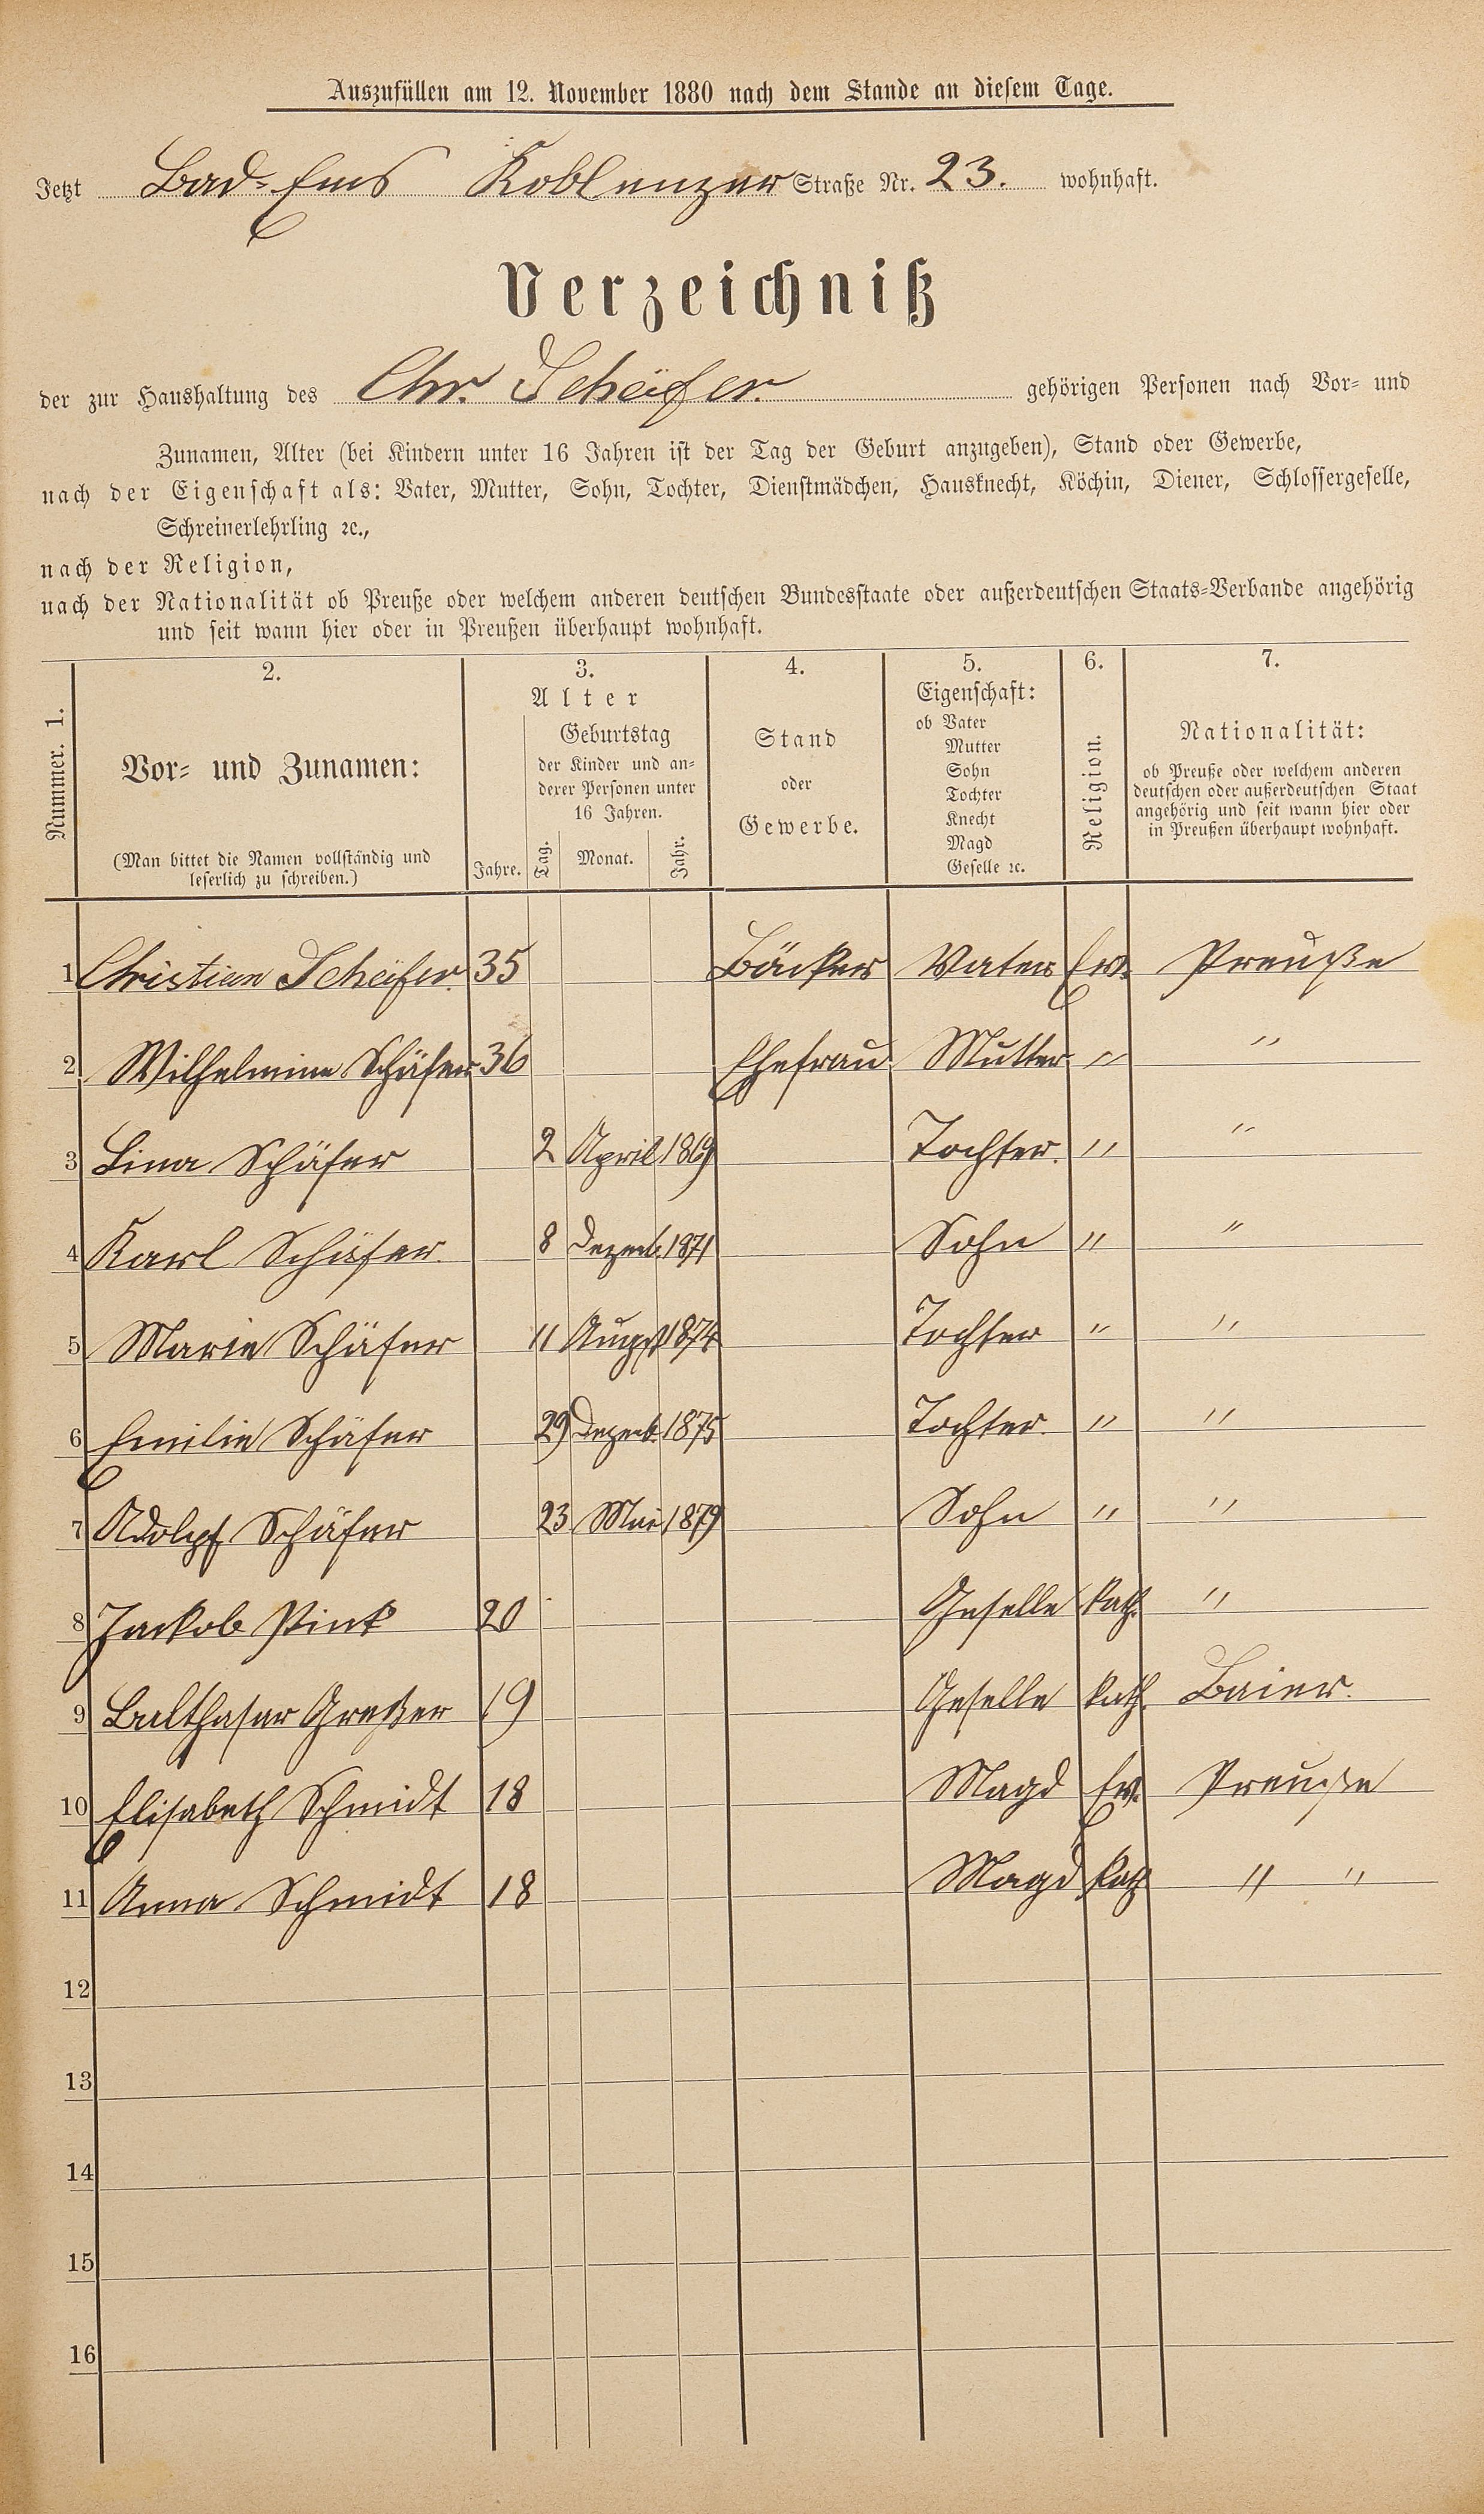 Auszufüllen am 12. November 1880 nach dem Stande an diesem Tage.
Jetzt Bad-Ems Koblenzer Straße Nr. 23. wohnhaft.
Verzeichniß
der zur Haushaltung des Chr. Schäfer. gehörigen Personen nach Vor- und
Zunamen, Alter (bei Kindern unter 16 Jahren ist der Tag der Geburt anzugeben), Stand oder Gewerbe,
nach der Eigenschaft als: Vater, Mutter, Sohn, Tochter, Dienstmädchen, Hausknecht, Köchin, Diener, Schlossergeselle,
Schreinerlehrling ꝛc.,
nach der Religion,
nach der Nationalität ob Preuße oder welchem anderen deutschen Bundesstaate oder außerdeutschen Staats-Verbande angehörig
und seit wann hier oder in Preußen überhaupt wohnhaft.
Nummer. 1.
2.
Vor- und Zunamen:
(Man bittet die Namen vollständig und
leserlich zu schreiben.)
3.
Alter
Jahre.
Geburtstag
der Kinder und an-
derer Personen unter
16 Jahren.
Tag. Monat. Jahr.
4.
Stand
oder
Gewerbe.
5.
Eigenschaft:
ob Vater
Mutter
Sohn
Tochter
Knecht
Magd
Geselle ꝛc.
6.
Religion.
7.
Nationalität:
ob Preuße oder welchem anderen
deutschen oder außerdeutschen Staat
angehörig und seit wann hier oder
in Preußen überhaupt wohnhaft.
1 Christian Schäfer. 35 Bäcker Vater Ev. Preuße
2 Wilhelmine Schäfer 36 Ehefrau Mutter " "
3 Lina Schäfer 2 April 1869 Tochter. " "
4 Karl Schäfer. 8 Dezemb. 1871 Sohn " "
5 Marie Schäfer 11 Augst 1874 Tochter " "
6 Emilie Schäfer 29 Dezemb. 1875 Tochter. " "
7 Adolpf Schäfer 23 Mai 1879 Sohn " "
8 Jackob Pink 20 Geselle kath. "
9 Balthasar Greßer 19 Geselle kath. Baier.
10 Elisabeth Schmidt 18 Magd Ev. Preuße
11 Anna Schmidt 18 Magd kath " "
12
13
14
15
16